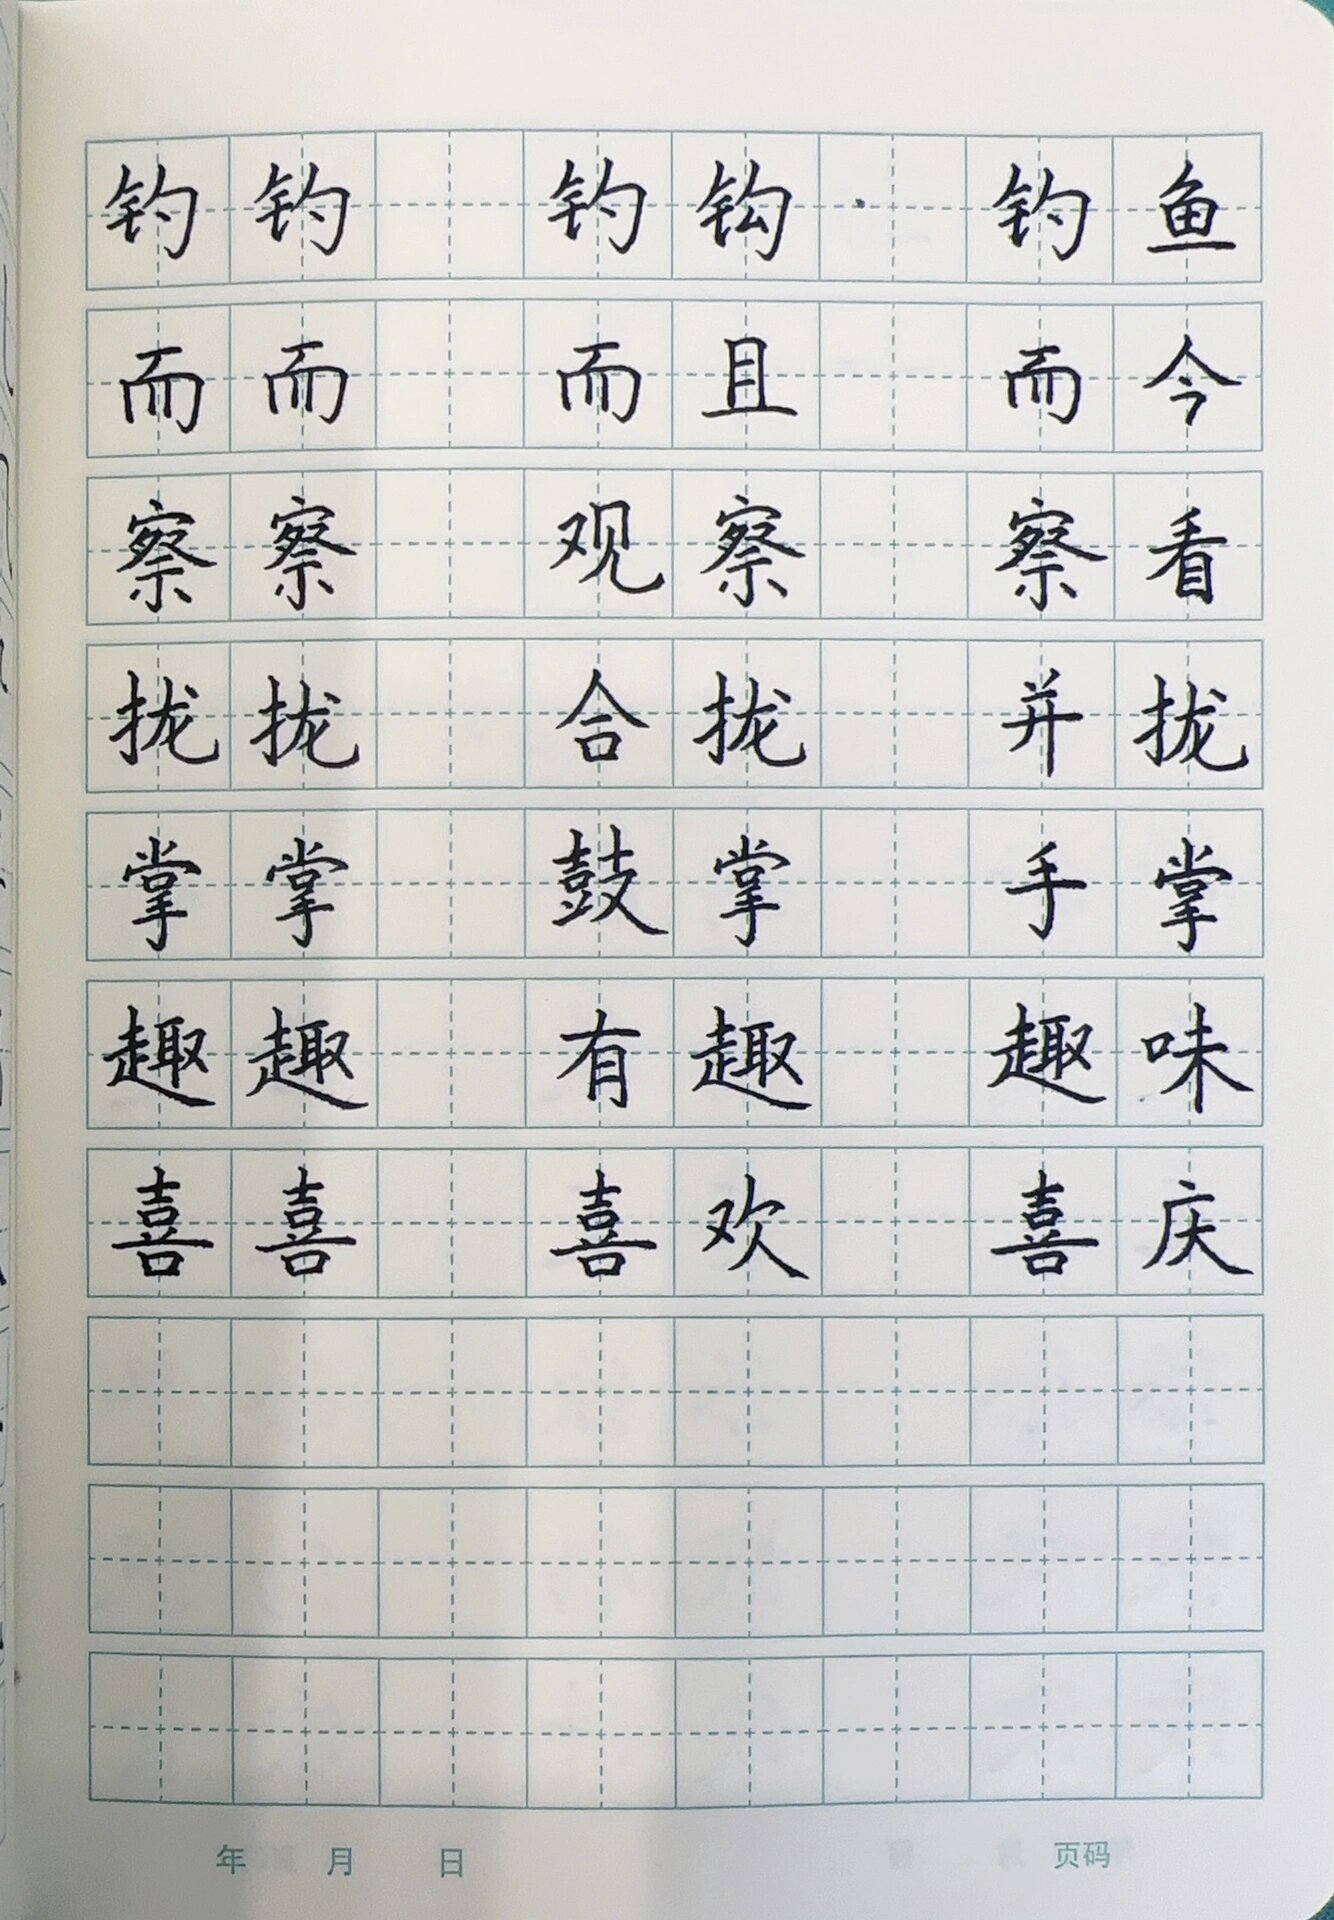 钓钓 钓钩 钓鱼
而而 而且 而今
察察 观察 察看
拢拢 合拢 并拢
掌掌 鼓掌 手掌
趣趣 有趣 趣味
喜喜 喜欢 喜庆
年 月 日 页码